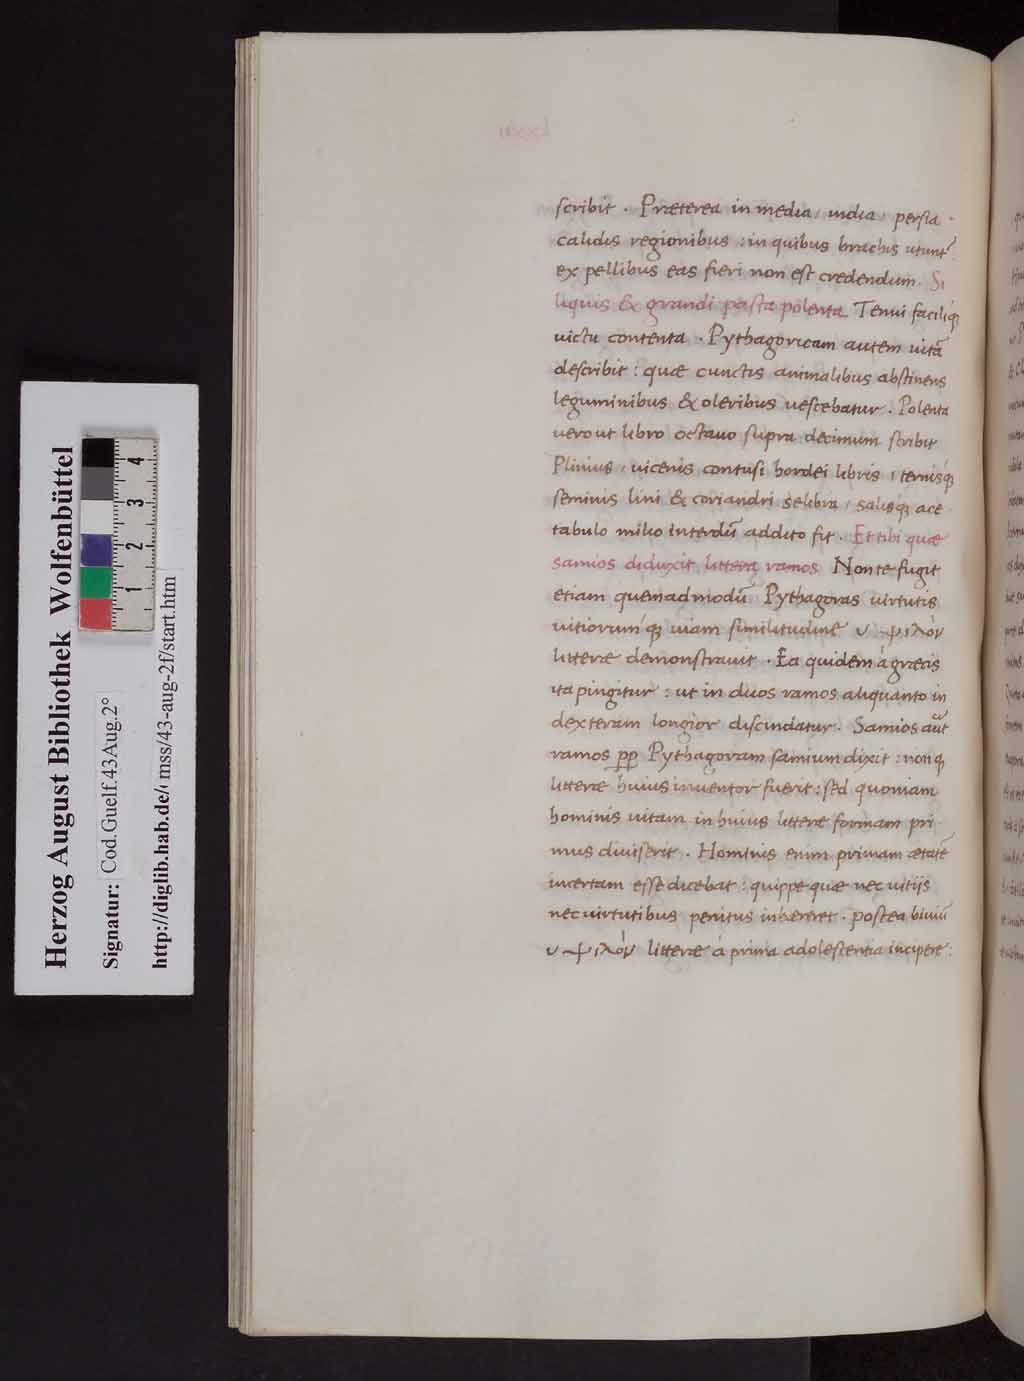 scribit . Præterea in media, india, persia .
calidis regionibus : in quibus brachis utunt᷑
ex pellibus eas fieri non est credendum. Si
liquis & grandi pasta polenta Tenui faciliq́ꝫ
victu contenta . Pythagoricam autem uitā
describit : quæ cunctis animalibus abstinens
leguminibus & oleribus uescebatur . Polenta
uero ut libro octauo supra decimum scribit
Plinius, uicenis contusi hordei libris, ternisq́ꝫ
seminis lini & coriandri selibra, salisq́ꝫ ace
tabulo milio interdū addito fit . Et tibi quæ
samios diduxit littera ramos Non te fugit
etiam quemadmodū Pythagoras uirtutis
uitiorumq́ꝫ uiam similitudine υ ψιλὸν
litteræ demonstrauit . Ea quidem à græcis
ita pingitur : ut in duos ramos aliquanto in
dexteram longior discindatur . Samios aūt
ramos ꝓp Pythagoram samium dixit : non qꝫ
litteræ huius inuentor fuerit : sed quoniam
hominis uitam in huius litteræ formam pri
mus diuiserit . Hominis enim primam ætatē
incertam esse dicebat : quippe quæ nec uitijs
nec uirtutibus penitus inhereret . postea biuiū
υ ψιλὸν litteræ à prima adolescentia incipere :
Herzog August Bibliothek Wolfenbüttel
Signatur: Cod.Guelf.43Aug.2°
http://diglib.hab.de/ mss/43-aug-2f/start.htm
1 2 3 4